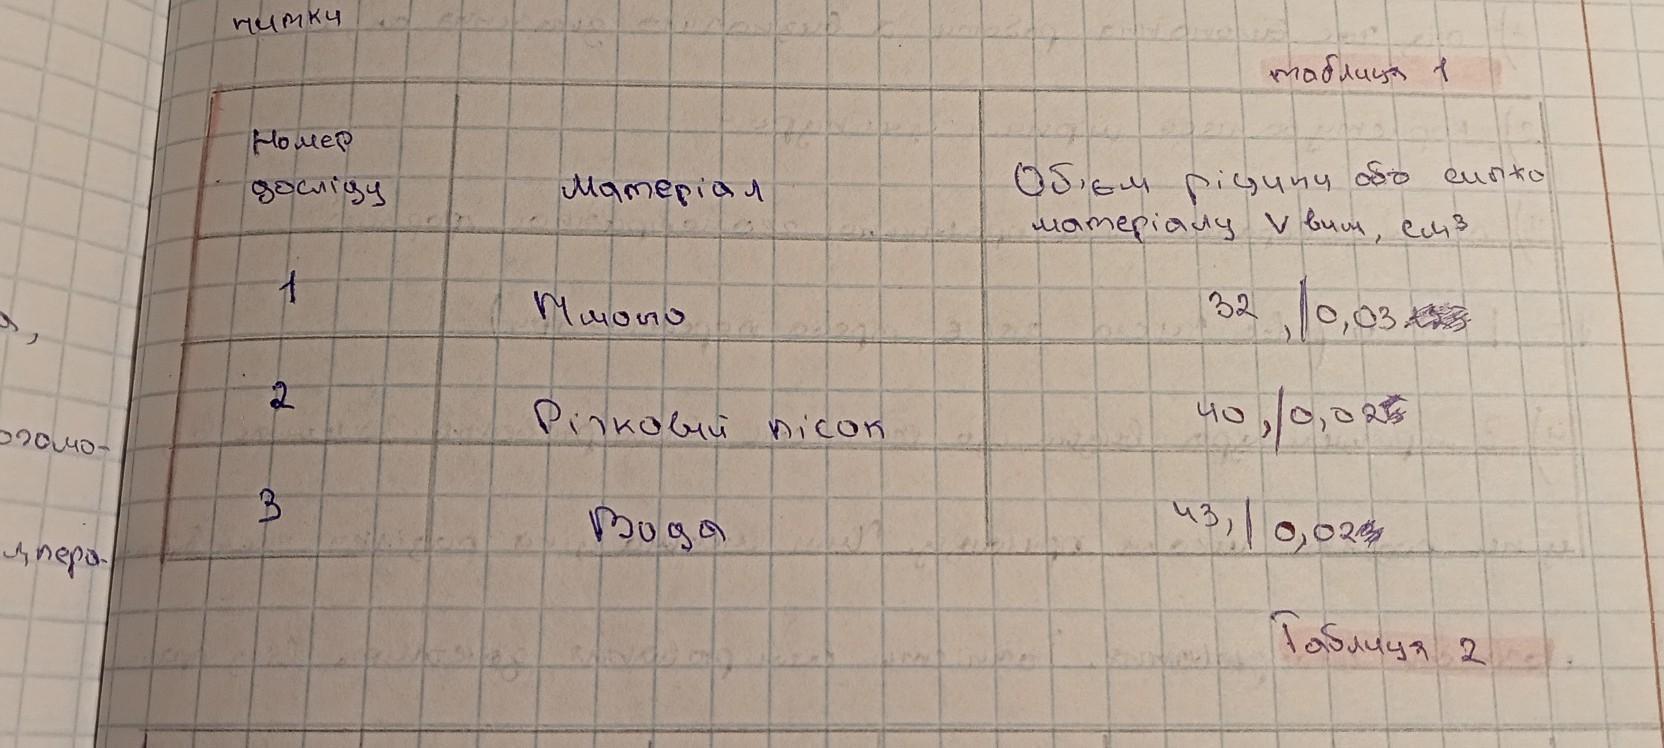 нитки
таблиця 1
Номер
досліду
Матеріал
Об'єм рідини або сипко
матеріалу V вим, см³
1
Пшоно
32, | 0,03
2
Річковий пісок
40, | 0,02
3
Вода
43, | 0,02
Таблиця 2